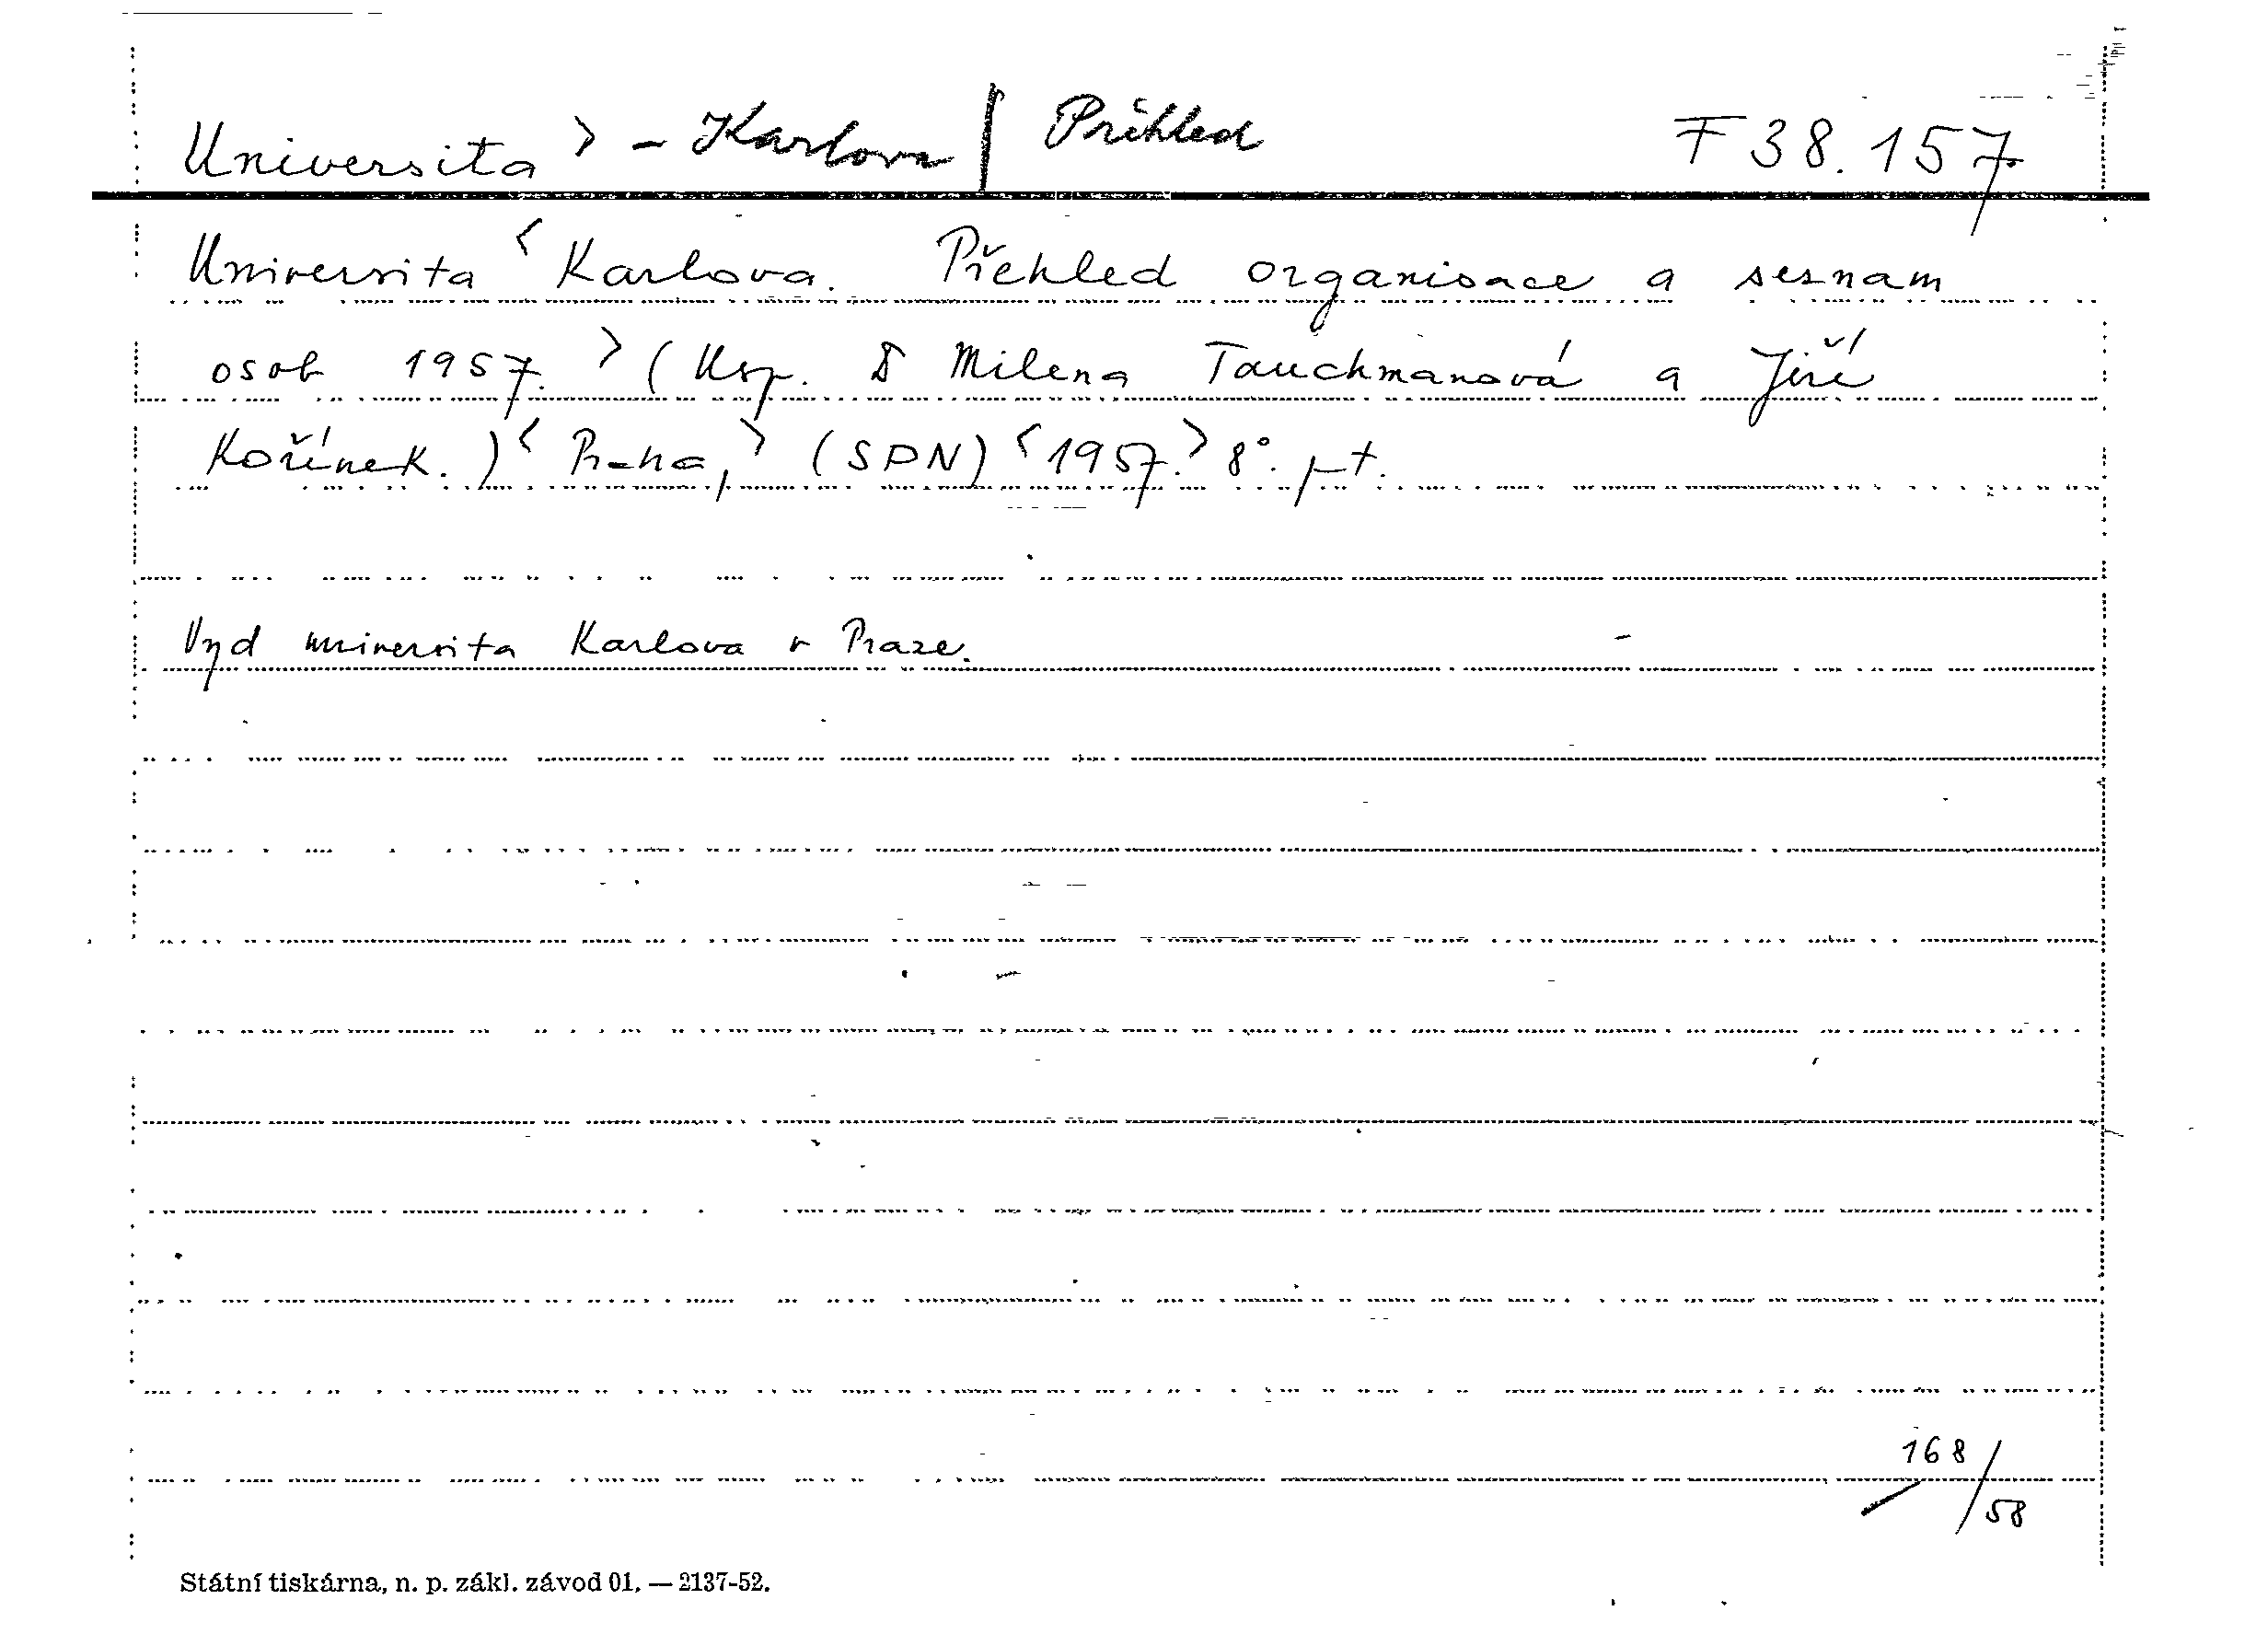 Universita > - Karlova | Přehled F 38.157
Universita < Karlova. Přehled organisace a seznam
osob 1957. > ( Usp. Milena Tauchmanová a Jiří
Kořínek. ) < Praha, > (SPN) < 1957. > 8°.
Vyd universita Karlova v Praze.
168/58
Státní tiskárna, n. p. zákl. závod 01. — 2137-52.